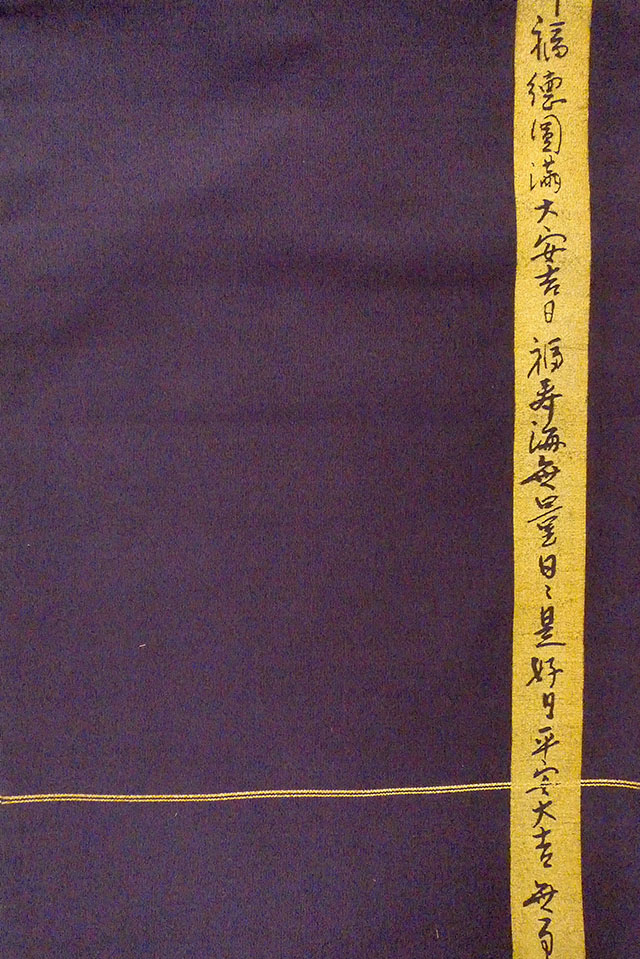 福德圓満大安吉日福寿海無量日々是好日平安大吉無